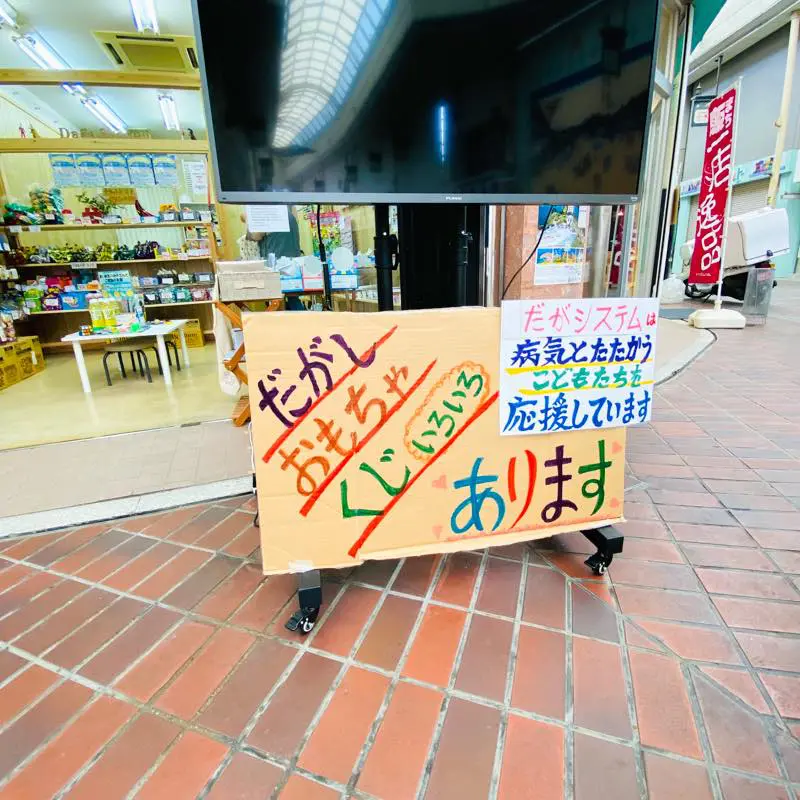 だがし
おもちゃ
くじ いろいろ
あります
だがシステムは
病気とたたかう
こどもたちを
応援しています
逸品